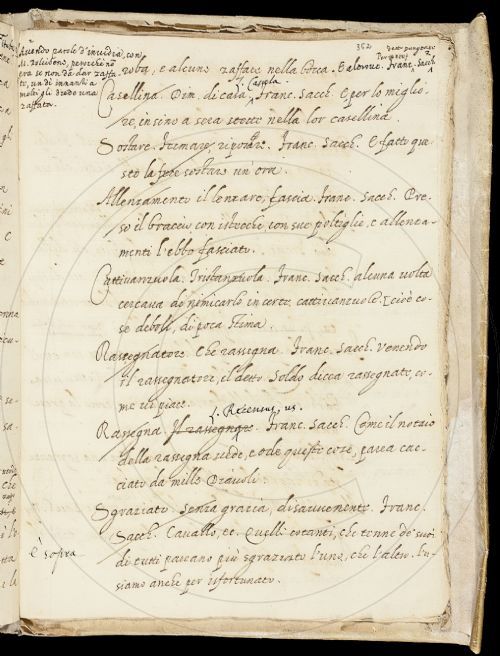 352
Avendo parole d'invidia, con
M. Dolcibene, perciché nõ
era se non da dar zaffa-
te, un di innanzi a
molti gli diede una
zaffata.
roba, e alcuno zaffato nella bocca. Franc. Sacch.
Casellina. Dim. di casa, Franc. Sacch. E per lo miglio-
re, insino a sera stette nella lor casellina.
Sostare. Fermare, riposare. Franc. Sacch. E fatto que-
sto la fece sostare un'ora.
Allenzamento il lenzare, fascia. Franc. Sacch. Pre-
so il braccio, con istecche, con sue poltiglie, e allenza-
menti l'ebbe fasciato.
Cattivanzuola. Tristanzuola. Franc. Sacch. alcuna volta
cercava in certe cattivanzuole. [cioè co-
se deboli, di poca stima.
Rassegnatore. Che rassegna. Franc. Sacch. Venendo
il rassegnatore, e'l detto Soldo dicea rassegnate, co-
me vi piace.
L. Recensus, us.
Rassegna. Il rassegnare. Franc. Sacch. Come il notaio
della rassegna vede, e ode queste cose, parea cac-
ciato da mille Diavoli.
Sgraziato. Senza grazia, disavvenente. Franc.
Sacch. Cavallo, ec. Quelli cotanti, che tenne de' suoi
dì tutti pareano più sgraziato l'uno, che l'altro. U-
siamo anche per isfortunato.
È sopra